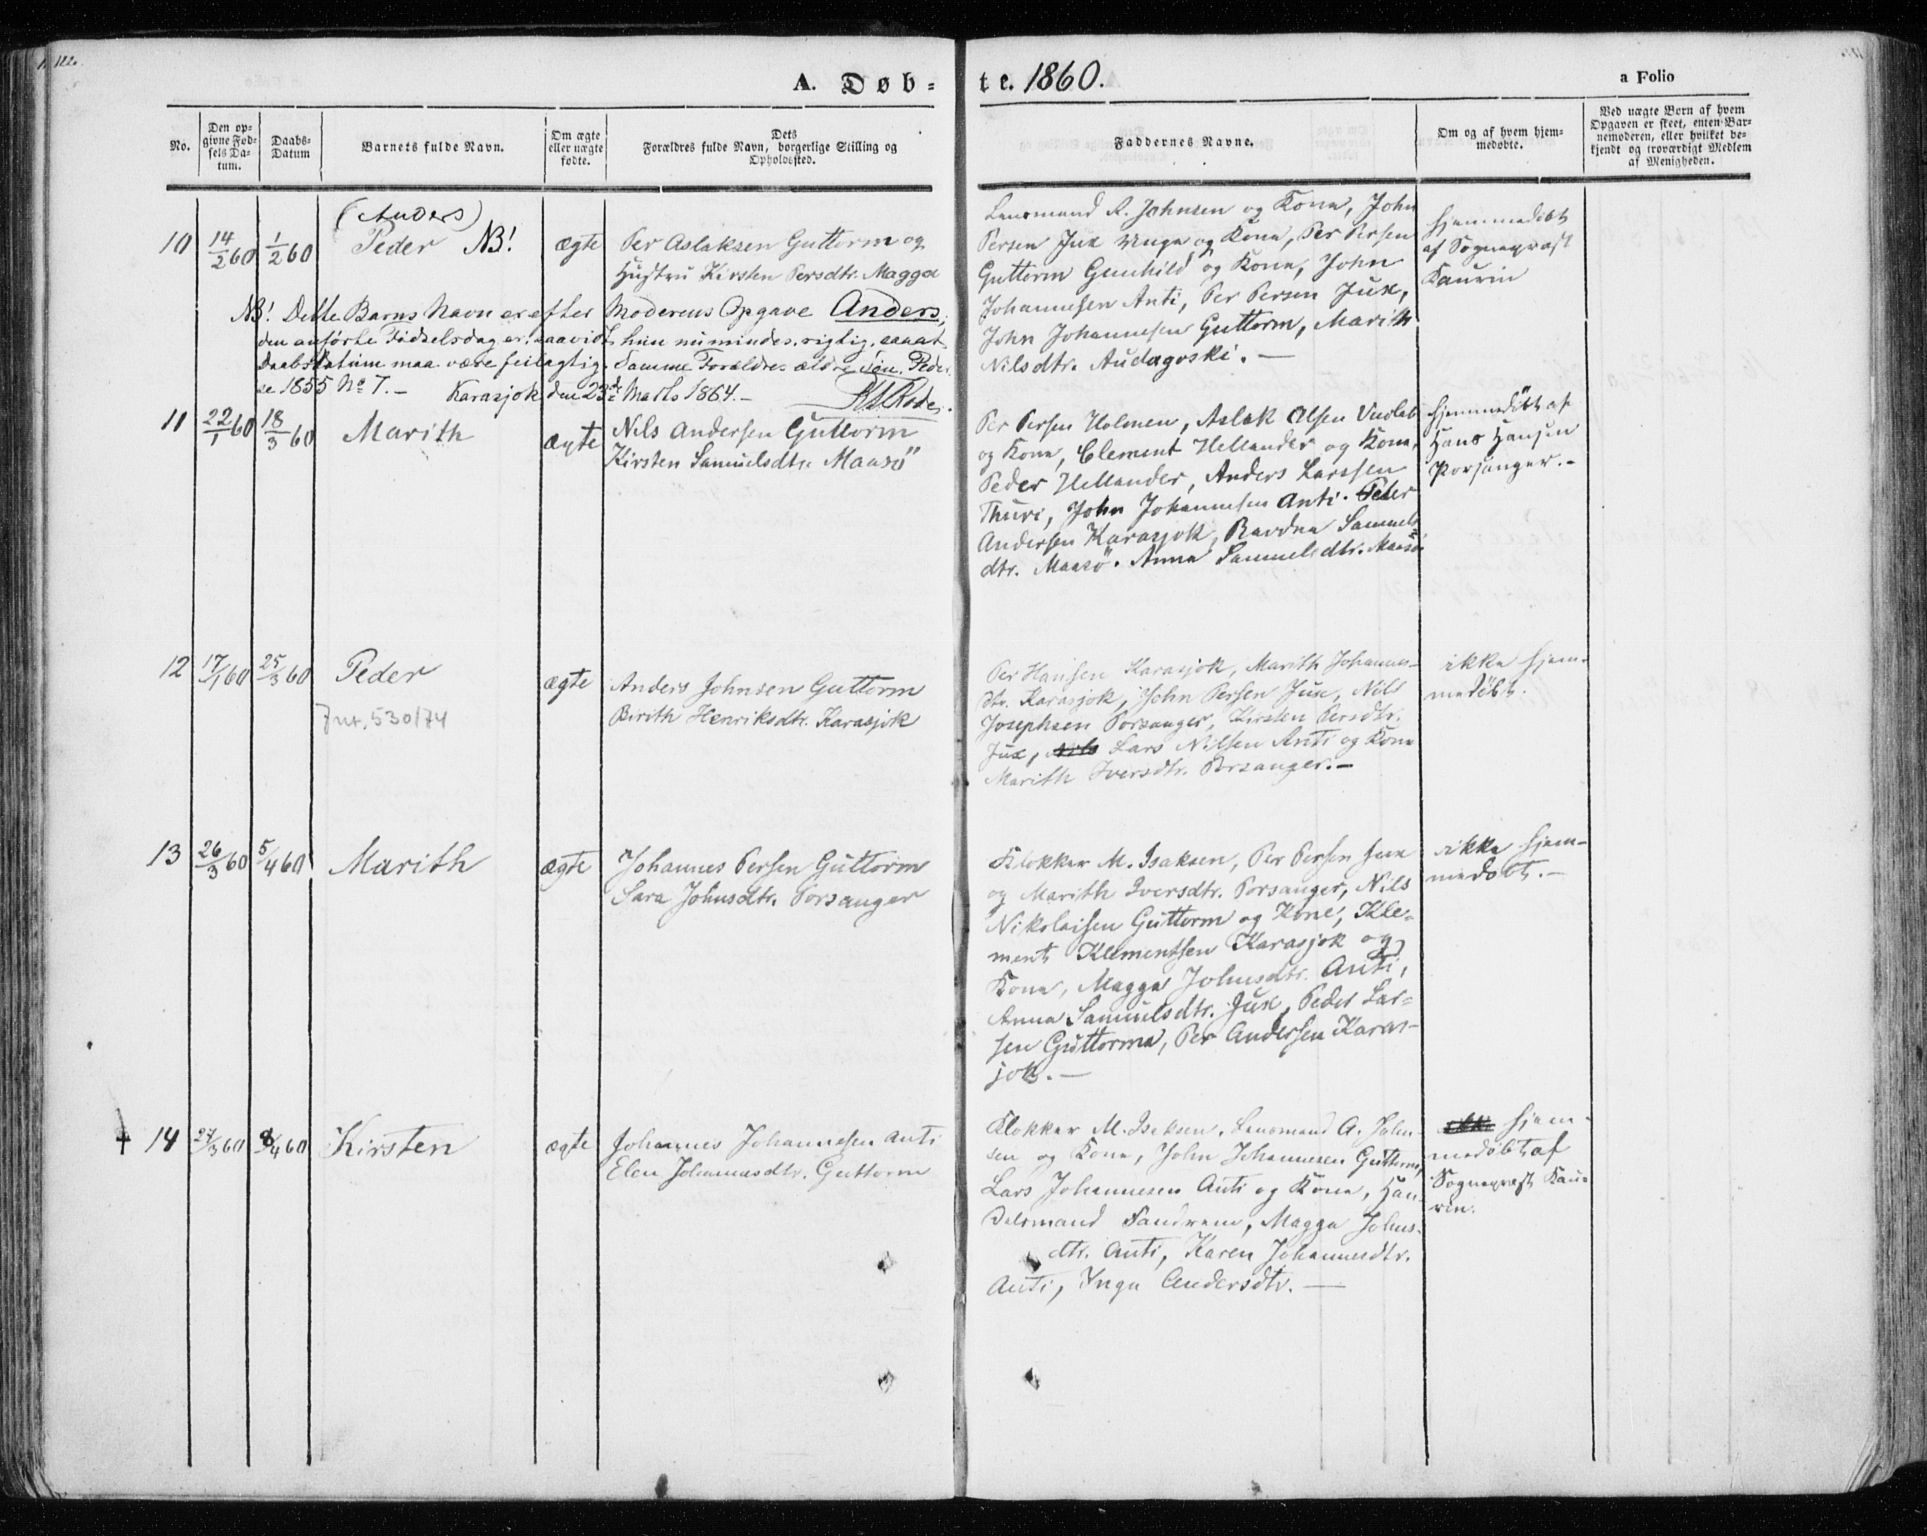 122.
A. Døb-
te. 1860.
a Folio
No.
Den op-
givne Fød-
sels Da-
tum.
Daabs-
Datum
Barnets fulde Navn.
Om ægte
eller uægte
fødte.
Dets
Forældres fulde Navn, borgerlige Stilling og
Opholdssted.
Faddernes Navne.
Om og af hvem hjem-
medøbte.
Ved uægte Børn af hvem
Opgaven er skeet, enten Bar-
nemoderen, eller hvilket be-
kjendt og troværdigt Medlem
af Menigheden.
10
14/2 60
1/2 60
(Anders)
Peder NB!
ægte
Per Aslaksen Guttorm og
Hustru Kirsten Persdtr. Magga
NB! Dette Barns Navn er efter Moderens Opgave Anders,
den anførte Fødselsdag er, saavidt hun nu mindes, rigtig, saa at
Daabsdatum maa være feilagtig. Samme Forældres ældre Søn Peder
se 1855 No 7. – Karasjok den 23de Marts 1864. –
Lensmand A. Johnsen og Kone, John
Persen Jux Unga og Kone, Per Persen
Guttorm Gunhild og Kone, John
Johannesen Anti, Per Persen Jux,
John Johannesen Guttorm, Marith
Nilsdtr. Audagoski. –
Hjemmedøbt
af Sognepræst
Kaurin
11
22/1 60
18/3 60
Marith
ægte
Nils Andersen Guttorm
Kirsten Samuelsdtr. Maasö
Per Persen Holmen, Aslak Olsen Vuolab
og Kone, Clement Hellander og Kone,
Peder Hellander, Anders Larssen
Thuri, John Johannesen Anti. Peder
Andersen Karasjok, Ravdna Samuels-
dtr. Maasö. Anna Samuelsdtr. Maasö
Hjemmedöbt af
Hans Hansen
Porsanger. –
12
17/1 60
25/3 60
Peder
Jnr. 530/74
ægte
Anders Johnsen Guttorm
Birith Henriksdtr. Karasjok
Per Hansen Karasjok, Marith Johannes-
dtr. Karasjok, John Persen Jux, Nils
Josephsen Porsanger, Kirsten Persdtr.
Jux, Nils Lars Nilsen Anti og Kone
Marith Iversdtr. Porsanger. –
ikke hjem-
medøbt.
13
26/3 60
5/4 60
Marith
ægte
Johannes Persen Guttorm
Sara Johnsdtr. Porsanger
Klokker M. Isaksen, Per Persen Jux
og Marith Iversdtr. Porsanger, Nils
Nikolaisen Guttorm og Kone, Kle-
ment Klementsen Karasjok og
Kone, Magga Johnsdtr. Anti,
Anna Samuelsdtr. Jux, Peder Lar-
sen Guttorm, Per Andersen Karas-
jok. –
ikke hjem-
medøbt. –
14
27/3 60
8/4 60
Kirsten
ægte
Johannes Johannesen Anti
Elen Johannesdtr. Guttorm
Klokker M. Isaksen, Lensmand A. John-
sen og Kone, John Johannesen Guttorm,
Lars Johannesen Anti og Kone, Han-
delsmand Fandrem, Magga Johns-
dtr. Anti, Karen Johannesdtr.
Anti, Inga Andersdtr. –
ikke hjem-
medøbt af
Sognepræst Kau-
rin.